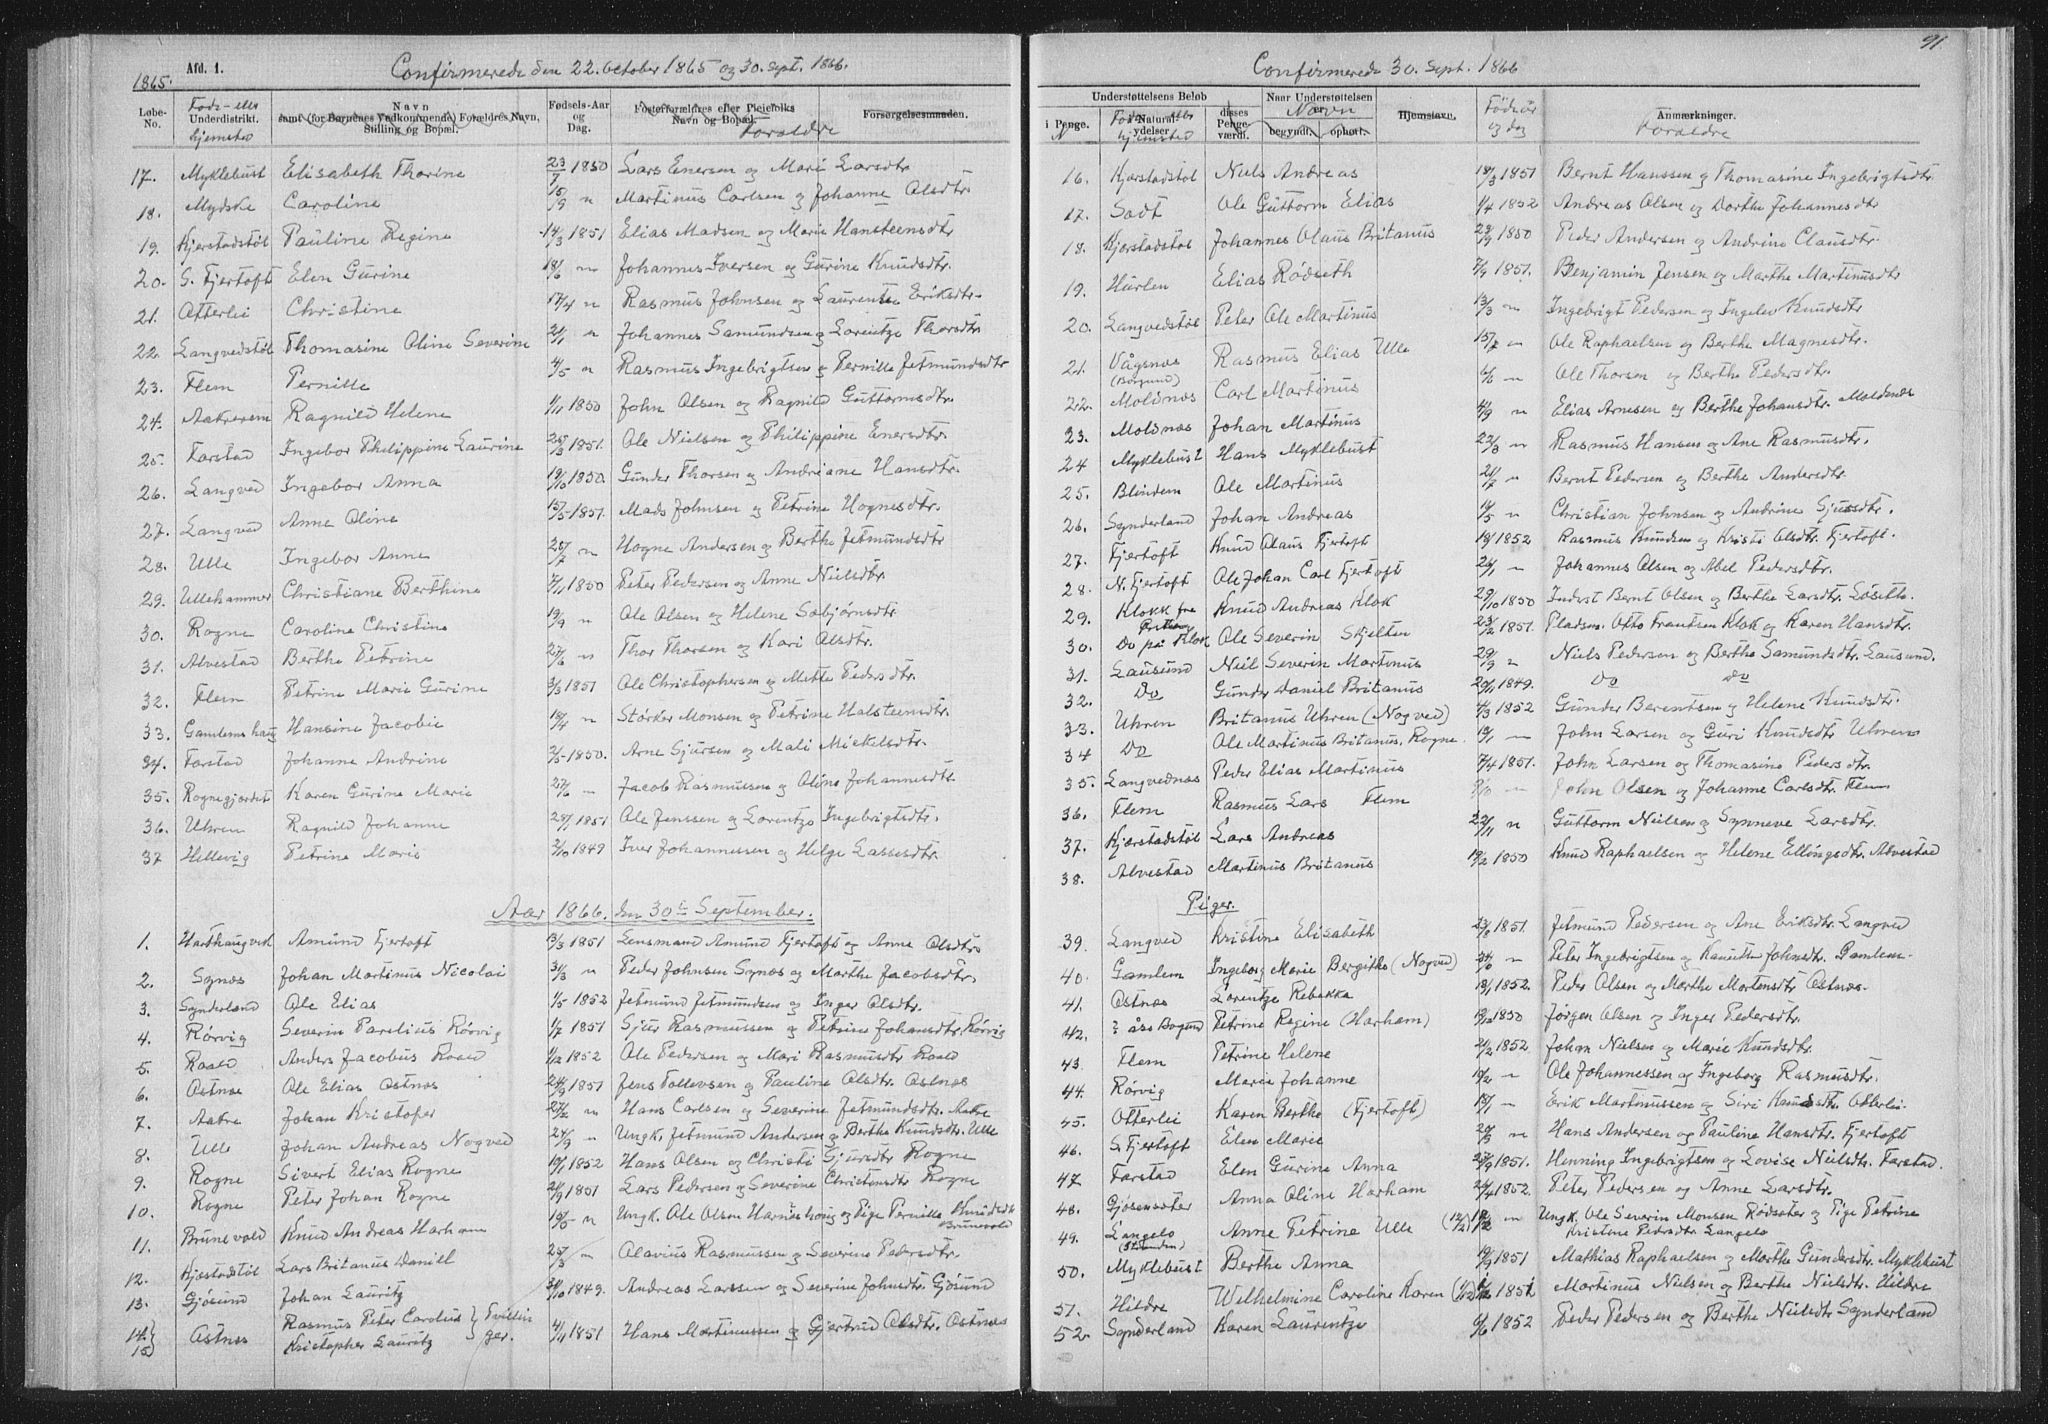 Confirmerede den 22. October 1865 og 30. Sept. 1866.
Afd. 1.
1865.
Løbe-No.
Føde- eller
Underdistrikt.
hjemsted
Navn
samt (for Børnenes Vedkommende) Forældres Navn,
Stilling og Bopæl.
Fødsels-Aar
og
Dag.
Fosterforældres eller Pleiefolks
Navn og Bopæl.
Forældre
Forsørgelsesmaaden.
17. Myklebust Elisabeth Thorine 23/7 1850 Lars Enersen og Mari Larsdtr
18. Mydske Caroline 15/9 " Martinus Carlsen og Johanne Olsdtr.
19. Kjerstadstøl Pauline Regine 14/3 1851 Elias Madsen og Marie Hansteensdtr
20. S. Fjertoft Elen Gurine 18/6 " Johannes Iversen og Gurine Knudsdtr.
21. Otterlei Christine 17/4 " Rasmus Johnsen og Laurentse Eriksdtr.
22. Langvedstøl Thomasine Oline Severine 21/1 " Johannes Samundsen og Lorentze Thorsdtr
23. Flem Pernille 4/5 " Rasmus Ingebrigtsen og Pernille Jetmundsdtr
24. Aakrevem Ragnild Helene 1/11 1850 John Olsen og Ragnild Guttormsdtr.
25. Farstad Ingebor Philippine Laurine 25/3 1851. Ole Nielsen og Philippine Enersdtr.
26. Langved Ingebor Anna 19/10 1850. Gunder Thorsen og Andriane Hansdtr.
27. Langved Anne Oline 15/5 1851. Mads Johnsen og Petrine Hognesdtr.
28. Ulle Ingebor Anne 28/7 " Hogne Andersen og Berthe Jetmundsdtr
29. Ullehammer Christiane Berthine 7/11 1850 Peter Pedersen og Anne Nielsdtr.
30. Rogne Caroline Christine 19/9 " Ole Olsen og Helene Sæbjørnsdtr
31. Alvestad Berthe Petrine 27/6 " Thor Thorsen og Kari Olsdtr.
32. Flem Petrine Marie Gurine 3/3 1851 Ole Christophersen og Mette Pedersdtr.
33. Gamlemshaug Hansine Jacobie 18/4 " Størker Monsen og Petrine Halsteensdtr.
34. Farstad Johanne Andrine 2/5 1850. Arne Sjursen og Mali Mickelsdtr.
35. Rognegjerdet Karen Gurine Marie 27/6 — Jacob Rasmussen og Oline Johannesdtr.
36. Uhren Ragnild Johanne 28/1 1851 Ole Jenssen og Lorentze Ingebrigtsdtr.
37 Hellevig Petrine Marie 2/10 1849 Iver Johannessen og Helge Lassesdtr.
Aar 1866. den 30te September.
1. Amund Fjertoft 13/3 1851 Lensmand Amund Fjertoft og Anne Olsdtr
2. Synes Johan Martinus Nicolai 31/3 " Peder Johnsen Synes og Marthe Jacobsdtr.
3. Synderland Ole Elias 1/5 1852 Jetmund Jetmundsen og Inger Olsdtr.
4. Rørvig Severin Parelius Rørvig 1/7 1851 Sjur Rasmussen og Petrine Johansdtr. Rørvig
5. Roald Anders Jacobus Roald 1/12 1852 Ole Pedersen og Mari Rasmusdtr Roald
6. Ostnes Ole Elias Ostnes 24/9 1851 Jens Tollevsen og Pauline Olsdtr. Ostnes
7. Aakre Johan Kristofer 25/2 " Hans Carlsen og Severine Jetmundsdtr. Aakre
8. Ulle Johan Andreas Nogved 24/9 " Ungk. Jetmund Andersen og Berthe Knudsdtr. Ulle
9. Rogne Sivert Elias Rogne 19/1 1852 Hans Olsen og Christi Sjursdtr Rogne
10. Rogne Peter Johan Rogne 21/9 1851 Lars Pedersen og Severine Christensdtr Rogne
11. Brunevold Knud Andreas Harham 18/5 " Ungk. Ole Olsen Harnishoug og Pige Pernille Knudsdtr Brunevold
12. Kjerstadstøl Lars Britanus Daniel 28/3 " Olavius Rasmussen og Severine Pedersdtr.
13. Gjøsund Johan Lauritz 31/10 1849. Andreas Larssen og Severine Johnsdtr. Gjøsund
14. } Ostnes Rasmus Peter Carolus } Tvillin
15 } Kristopher Lauritz } ger. 4/11 1851 Hans Martinussen og Gjertrud Olsdtr. Ostnes
91
Confirmerede 30. Sept. 1866
Understøttelsens Beløb
i Penge.
N
Natural-
ydelser
Føde- eller
hjemsted
disses
Penge-
værdi.
Naar Understøttelsen
er
Navn
begyndt. ophørt.
Hjemstavn.
Fødselsår
og dag
Anmærkninger.
Forældre
16. Kjærstadstøl Niels Andreas 18/3 1851 Bernt Hanssen og Thomasine Ingebrigtsdtr
17. Ole Guttorm Elias 1/4 1852 Andreas Olsen og Dorthe Johannesdtr
18. Kjærstadstøl Johannes Olaus Britanus 29/9 1850 Peder Andersen og Andrine Clausdtr.
19. Hurlen Elias Rødseth 7/9 1851. Benjamin Jensen og Marthe Martinusdtr
20. Langvedstøl Peter Ole Martinus 13/3 " Ingebrigt Pedersen og Ingelev Knudsdtr
21. Vågsnes Rasmus Elias Ulle 15/7 " Ole Raphaelsen og Berthe Magnesdtr.
(Borgund)
22. Moldnes Carl Martinus 6/6 " Ole Thorsen og Berthe Pedersdtr.
23. Moldnes Johan Martinus 4/9 " Elias Arnesen og Berthe Johansdtr. Moldenes
24 Myklebust Hans Myklebust 22/8 " Rasmus Hansen og Ane Rasmusdtr.
25. Blindem Ole Martinus 21/7 " Bernt Pedersen og Berthe Andersdtr.
26. Synderland Johan Andreas 14/5 " Christian Johnsen og Andrine Sjursdtr.
27. Fjertoft Knud Olaus Fjertoft 18/1 1852 Rasmus Knudsen og Kristi Olsdtr. Fjertoft.
28. N. Fjertoft Ole Johan Carl Fjertoft 26/1 — Johannes Olsen og Abel Pedersdtr.
29. Klokk fra Knud Andreas Klok 29/10 1850 Inderst Bernt Olsen og Berthe Larsdtr. Løsette
30. Do på Klok Ole Severin Skjelten 23/2 1851. Pladsm. Otto Frantsen Klok og Karen Hansdtr.
31. Lausund Niel Severin Martinus 29/9 " Niels Pedersen og Berthe Samundsdtr. Lausund.
32. Do Gunder Daniel Britanus 20/11 1849. Do Do
33. Uhren Britanus Uhren (Nogved) 4/3 1852 Gunder Berentsen og Helene Knudsdtr
34 Do Ole Martinus Britanus, Rogne 19/1 — John Larsen og Guri Knudsdtr Uhren
35. Langvednes Peder Elias Martinus 7/4 1851. John Larsen og Thomasine Pedersdtr.
36. Flem Rasmus Lars Flem John Olsen og Johanne Carlsdtr. Flem
37. Kjærstadstøl Lars Andreas 22/11 " Guttorm Nielsen og Synneve Larsdtr.
38. Alvestad Martinus Britanus 19/2 1850 Knud Raphaelsen og Helene Ellingsdtr. Alvestad
Piger.
39. Langved Kristine Elisabeth 23/8 1851. Jetmund Pedersen og Ane Eriksdtr. Langved
40. Gamlem Ingeborg Marie Bergithe (Nogved) — Peter Ingebrigtsen og Johnsdtr. Gamlem.
41. Ostnes Lorentze Rebekka 13/1 1852. Peder Olsen og Marthe Mortensdtr Ostnes.
42. Petrine Regine (Harham) 1850 Jørgen Olsen og Inger Pedersdtr.
43. Flem Petrine Helene 2/2 1852 Johan Nielsen og Marie Knudsdtr.
44. Rørvig Marie Johanne 19/2 — Ole Johannessen og Ingeborg Rasmusdtr.
45. Otterlei Karen Berthe (Fjertoft) 13/1 — Erik Martinussen og Siri Knudsdtr. Otterlei.
46. S. Fjertoft Elen Marie 20/3 " Hans Andersen og Pauline Hansdtr. Fjertoft
47 Farstad Elen Gurine Anna 27/9 1851. Henning Ingebrigtsen og Lovise Nielsdtr. Farstad.
48. Gjøsensæter Anna Oline Harham 24/4 1852. Peter Pedersen og Anne Larsdtr.
49. Langelo Anne Petrine Ulle " Ungk. Ole Severin Monsen Rødsæter og Pige Petrine
Kristine Pedersdtr Langelo
50. Myklebust Berthe Anna 19/9 1851 Mathias Raphaelsen og Marthe Gundersdtr. Myklebust
51. Hildre Wilhelmine Caroline Karen 1851 Martinus Nielsen og Berthe Nielsdtr. Hildre
52. Synderland Karen Laurentze 9/6 1852 Peder Pedersen og Berthe Nielsdtr Synderland